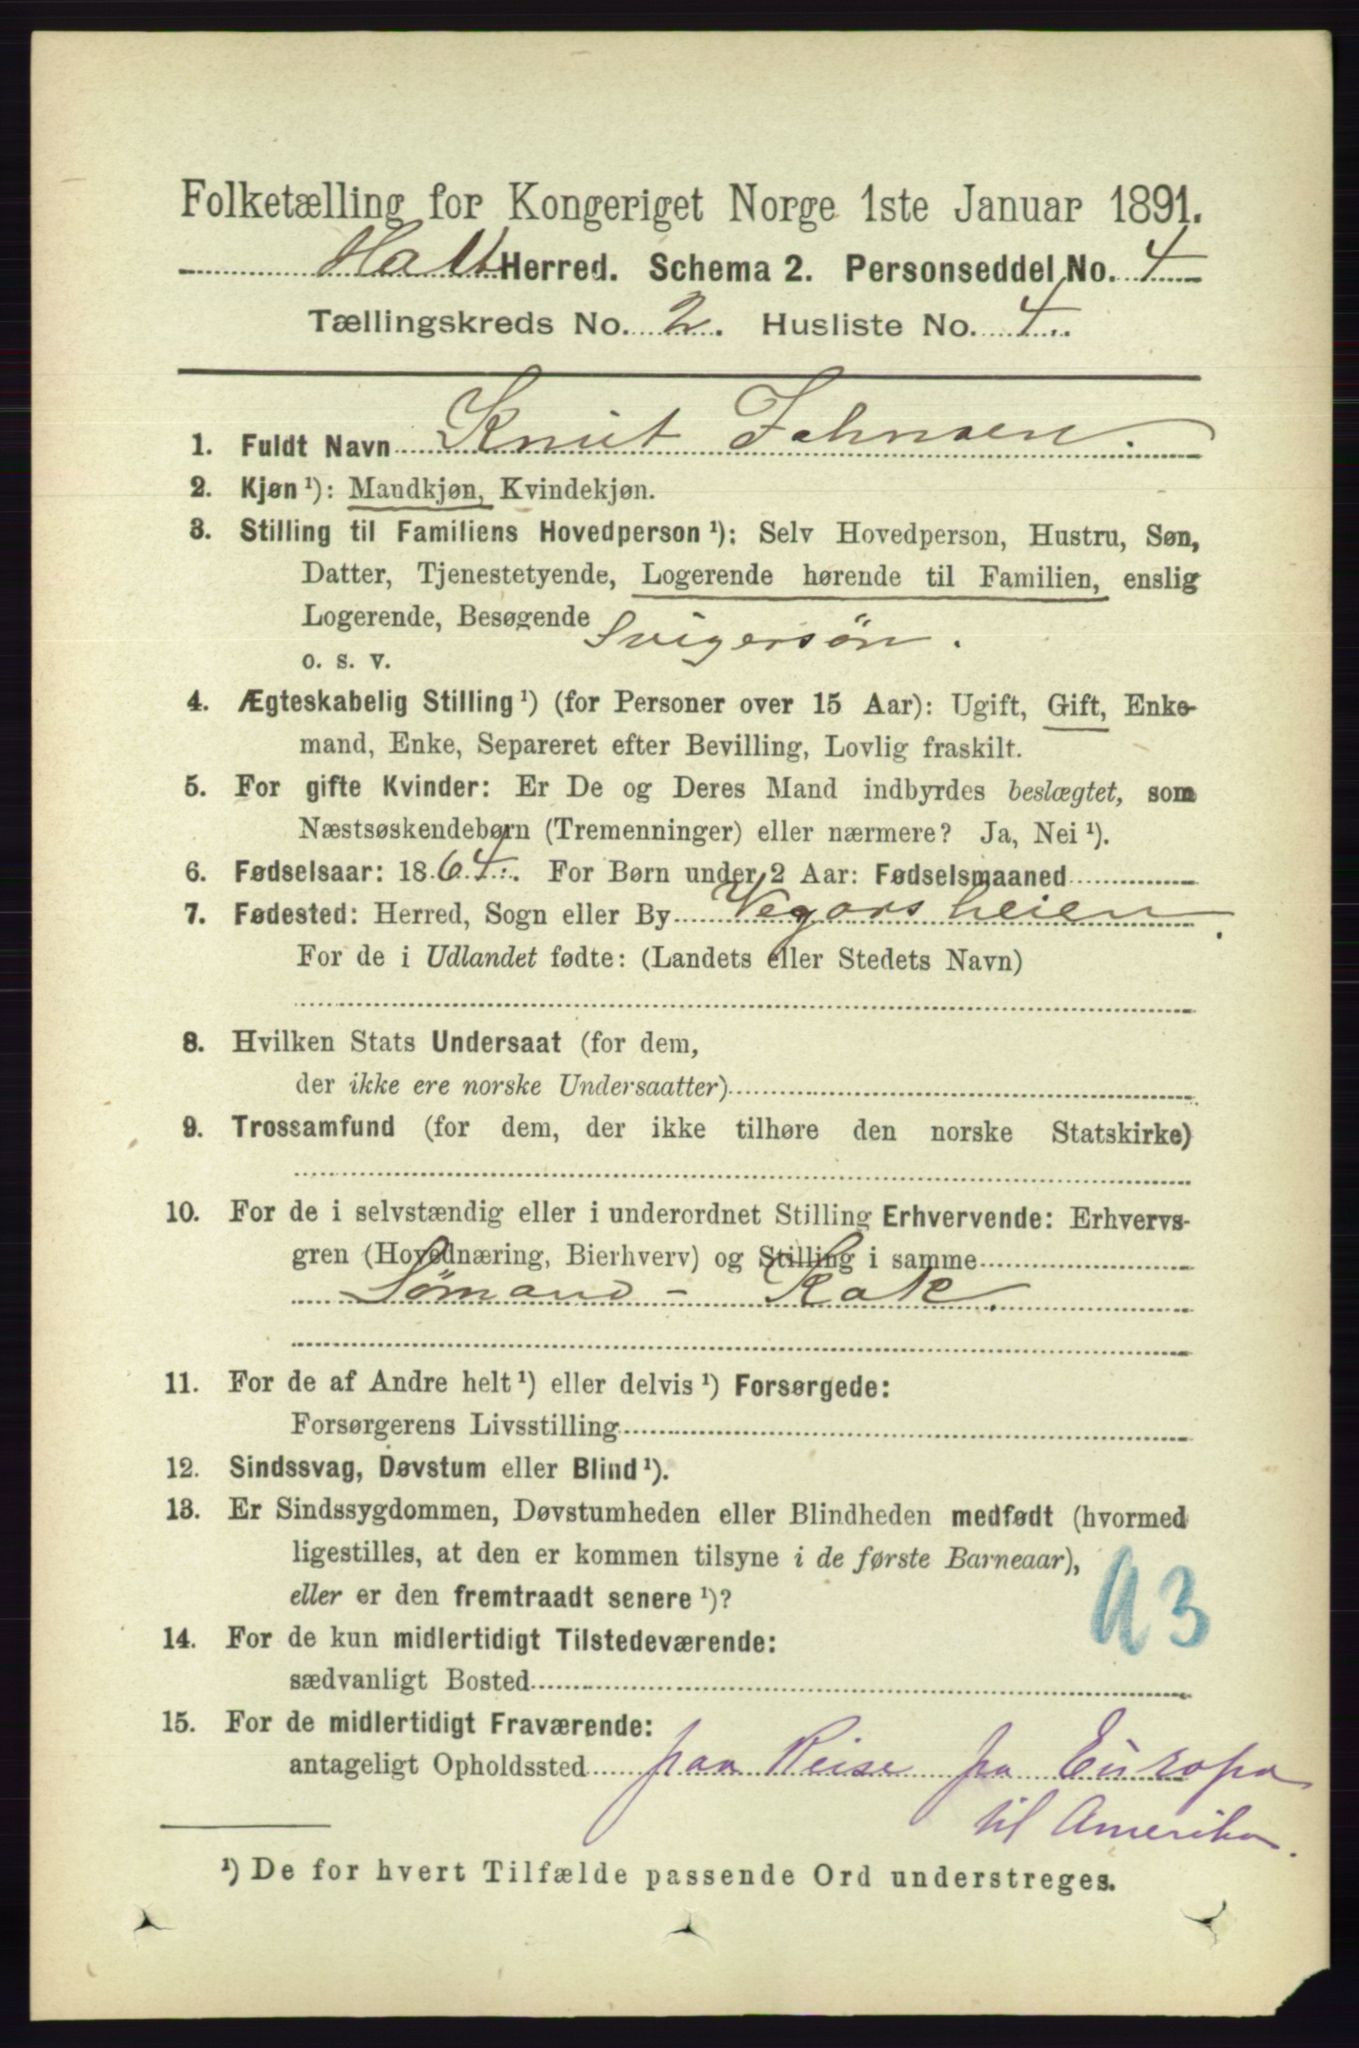 Folketælling for Kongeriget Norge 1ste Januar 1891.
Holt Herred. Schema 2. Personseddel No. 4
Tællingskreds No. 2. Husliste No. 4.
1. Fuldt Navn Knut Johnsen.
2. Kjøn ¹): Mandkjøn, Kvindekjøn.
3. Stilling til Familiens Hovedperson ¹): Selv Hovedperson, Hustru, Søn,
Datter, Tjenestetyende, Logerende hørende til Familien, enslig
Logerende, Besøgende Svigersøn.
o. s. v.
4. Ægteskabelig Stilling ¹) (for Personer over 15 Aar): Ugift, Gift, Enke-
mand, Enke, Separeret efter Bevilling, Lovlig fraskilt.
5. For gifte Kvinder: Er De og Deres Mand indbyrdes beslægtet, som
Næstsøskendebørn (Tremenninger) eller nærmere? Ja, Nei ¹).
6. Fødselsaar: 1864. For Børn under 2 Aar: Fødselsmaaned
7. Fødested: Herred, Sogn eller By Vegarsheien.
For de i Udlandet fødte: (Landets eller Stedets Navn)
8. Hvilken Stats Undersaat (for dem,
der ikke ere norske Undersaatter)
9. Trossamfund (for dem, der ikke tilhøre den norske Statskirke)
10. For de i selvstændig eller i underordnet Stilling Erhvervende: Erhvervs-
gren (Hovednæring, Bierhverv) og Stilling i samme
Sømand - Kok.
11. For de af Andre helt ¹) eller delvis ¹) Forsørgede:
Forsørgerens Livsstilling
12. Sindssvag, Døvstum eller Blind ¹).
13. Er Sindssygdommen, Døvstumheden eller Blindheden medfødt (hvormed
ligestilles, at den er kommen tilsyne i de første Barneaar),
eller er den fremtraadt senere ¹)?
14. For de kun midlertidigt Tilstedeværende:
sædvanligt Bosted
15. For de midlertidigt Fraværende:
antageligt Opholdssted paa Reise fra Europa
til Amerika.
¹) De for hvert Tilfælde passende Ord understreges.